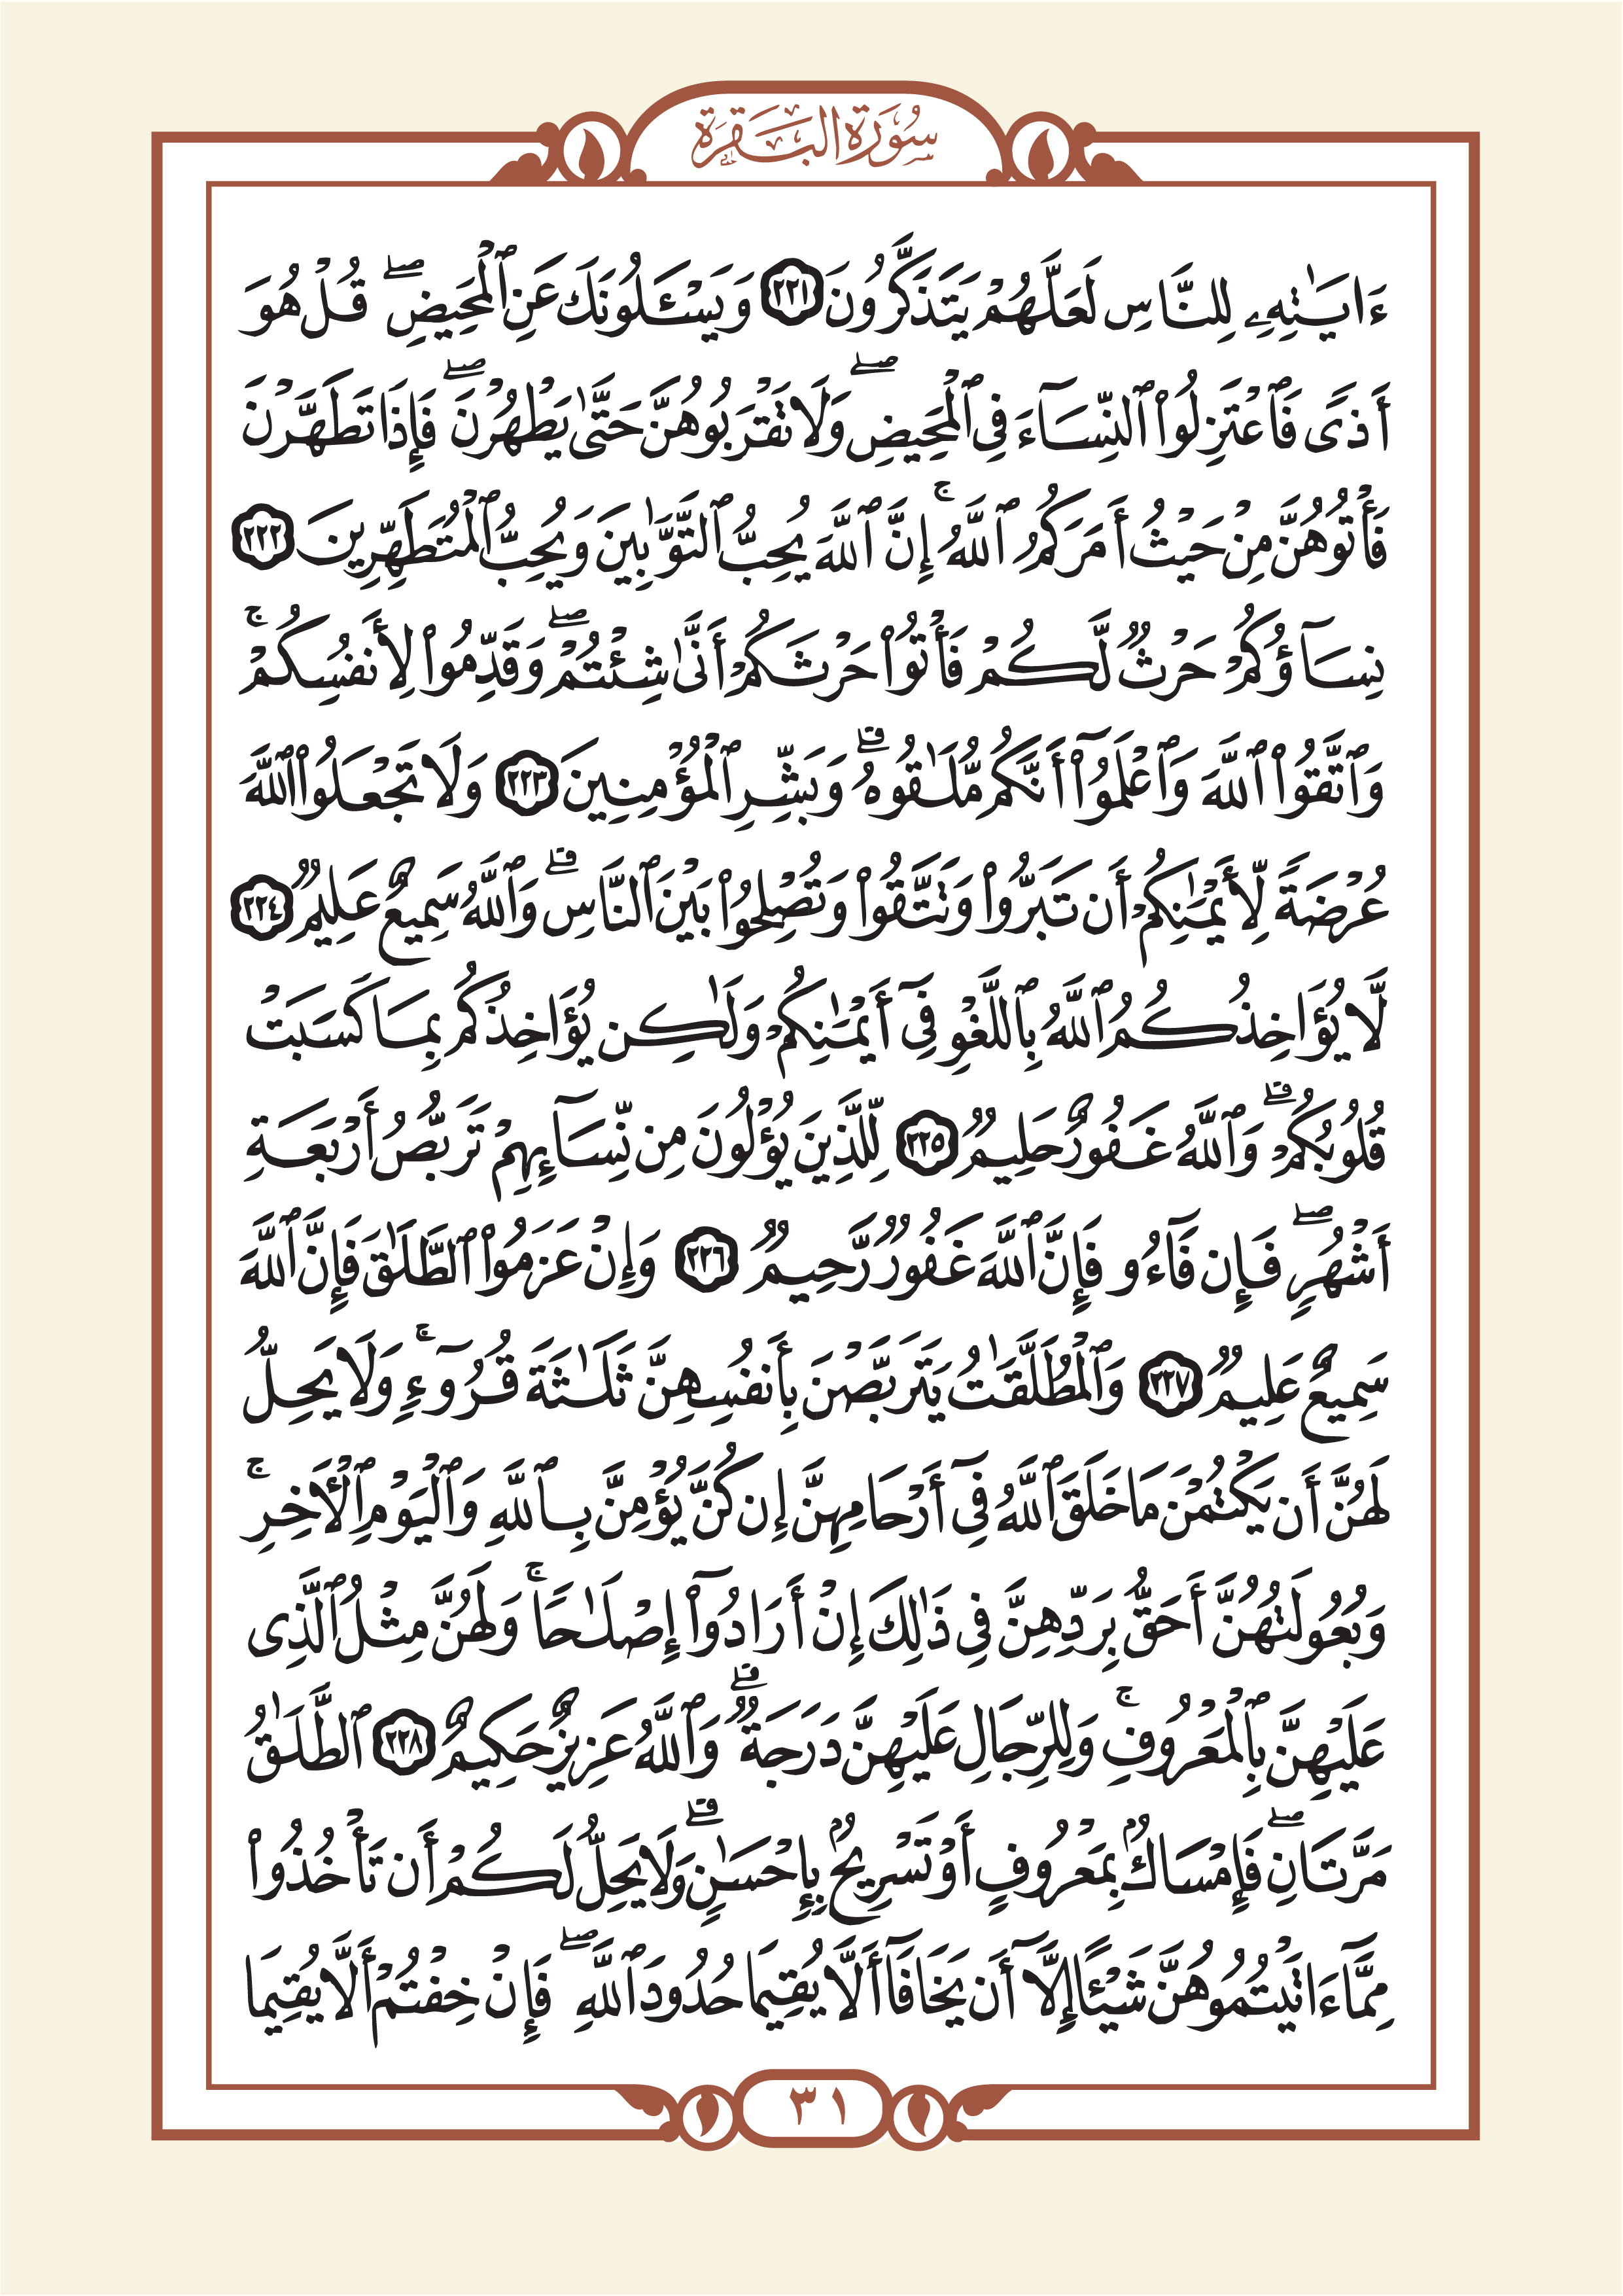 سُورَةُ البَقَرَةِ
ءَايَٰتِهِۦ لِلنَّاسِ لَعَلَّهُمْ يَتَذَكَّرُونَ ٢٢١ وَيَسْـَٔلُونَكَ عَنِ ٱلْمَحِيضِۖ قُلْ هُوَ
أَذًى فَٱعْتَزِلُوا۟ ٱلنِّسَآءَ فِى ٱلْمَحِيضِۖ وَلَا تَقْرَبُوهُنَّ حَتَّىٰ يَطْهُرْنَۖ فَإِذَا تَطَهَّرْنَ
فَأْتُوهُنَّ مِنْ حَيْثُ أَمَرَكُمُ ٱللَّهُۚ إِنَّ ٱللَّهَ يُحِبُّ ٱلتَّوَّٰبِينَ وَيُحِبُّ ٱلْمُتَطَهِّرِينَ ٢٢٢
نِسَآؤُكُمْ حَرْثٌ لَّكُمْ فَأْتُوا۟ حَرْثَكُمْ أَنَّىٰ شِئْتُمْۖ وَقَدِّمُوا۟ لِأَنفُسِكُمْۚ
وَٱتَّقُوا۟ ٱللَّهَ وَٱعْلَمُوٓا۟ أَنَّكُم مُّلَٰقُوهُۗ وَبَشِّرِ ٱلْمُؤْمِنِينَ ٢٢٣ وَلَا تَجْعَلُوا۟ ٱللَّهَ
عُرْضَةً لِّأَيْمَٰنِكُمْ أَن تَبَرُّوا۟ وَتَتَّقُوا۟ وَتُصْلِحُوا۟ بَيْنَ ٱلنَّاسِۗ وَٱللَّهُ سَمِيعٌ عَلِيمٌ ٢٢٤
لَّا يُؤَاخِذُكُمُ ٱللَّهُ بِاللَّغْوِ فِىٓ أَيْمَٰنِكُمْ وَلَٰكِن يُؤَاخِذُكُم بِمَا كَسَبَتْ
قُلُوبُكُمْۗ وَٱللَّهُ غَفُورٌ حَلِيمٌ ٢٢٥ لِّلَّذِينَ يُؤْلُونَ مِن نِّسَآئِهِمْ تَرَبُّصُ أَرْبَعَةِ
أَشْهُرٍۖ فَإِن فَآءُو فَإِنَّ ٱللَّهَ غَفُورٌ رَّحِيمٌ ٢٢٦ وَإِنْ عَزَمُوا۟ ٱلطَّلَٰقَ فَإِنَّ ٱللَّهَ
سَمِيعٌ عَلِيمٌ ٢٢٧ وَٱلْمُطَلَّقَٰتُ يَتَرَبَّصْنَ بِأَنفُسِهِنَّ ثَلَٰثَةَ قُرُوٓءٍۚ وَلَا يَحِلُّ
لَهُنَّ أَن يَكْتُمْنَ مَا خَلَقَ ٱللَّهُ فِىٓ أَرْحَامِهِنَّ إِن كُنَّ يُؤْمِنَّ بِٱللَّهِ وَٱلْيَوْمِ ٱلْـَٔاخِرِۚ
وَبُعُولَتُهُنَّ أَحَقُّ بِرَدِّهِنَّ فِى ذَٰلِكَ إِنْ أَرَادُوٓا۟ إِصْلَٰحًاۚ وَلَهُنَّ مِثْلُ ٱلَّذِى
عَلَيْهِنَّ بِٱلْمَعْرُوفِۚ وَلِلرِّجَالِ عَلَيْهِنَّ دَرَجَةٌۗ وَٱللَّهُ عَزِيزٌ حَكِيمٌ ٢٢٨ ٱلطَّلَٰقُ
مَرَّتَانِۖ فَإِمْسَاكٌۢ بِمَعْرُوفٍ أَوْ تَسْرِيحٌۢ بِإِحْسَٰنٍۗ وَلَا يَحِلُّ لَكُمْ أَن تَأْخُذُوا۟
مِمَّآ ءَاتَيْتُمُوهُنَّ شَيْـًٔا إِلَّآ أَن يَخَافَآ أَلَّا يُقِيمَا حُدُودَ ٱللَّهِۖ فَإِنْ خِفْتُمْ أَلَّا يُقِيمَا
٣١